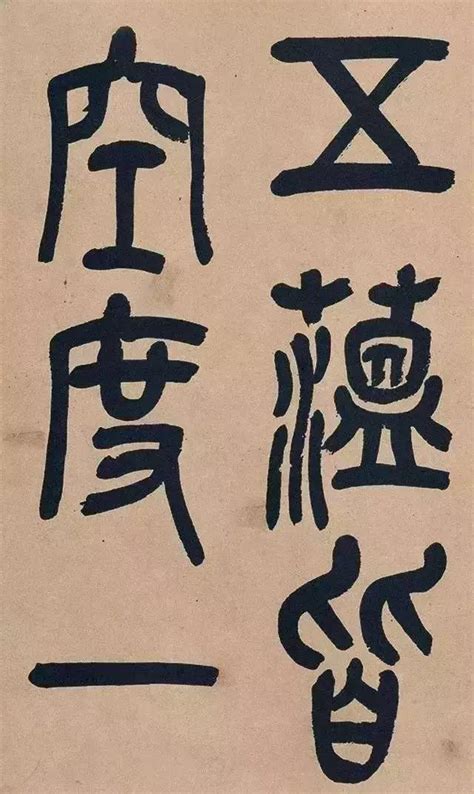 五蕴皆
空度一